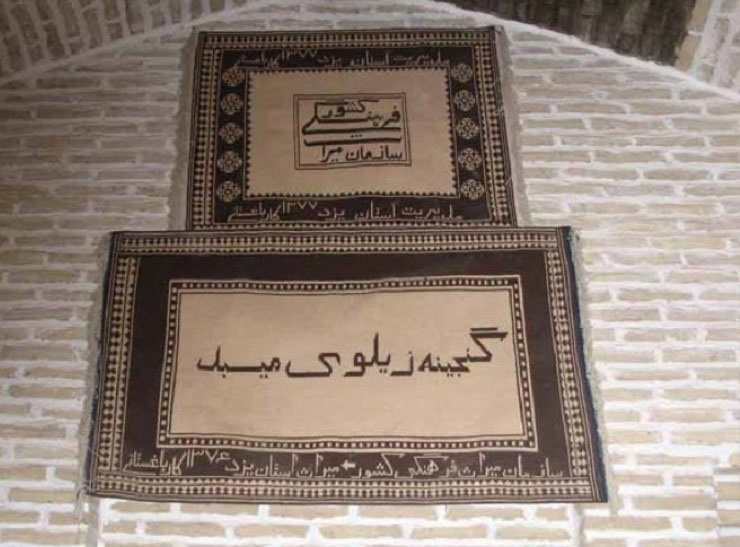 مدیریت استان یزد ۱۳۷۷ کار باغستانی
سازمان میراث
فرهنگی
کشور
مدیریت استان یزد ۱۳۷۷ کار باغستانی
گنجینه زیلوی میبد
سازمان میراث فرهنگی کشور - میراث استان یزد ۱۳۷۶ کار باغستانی